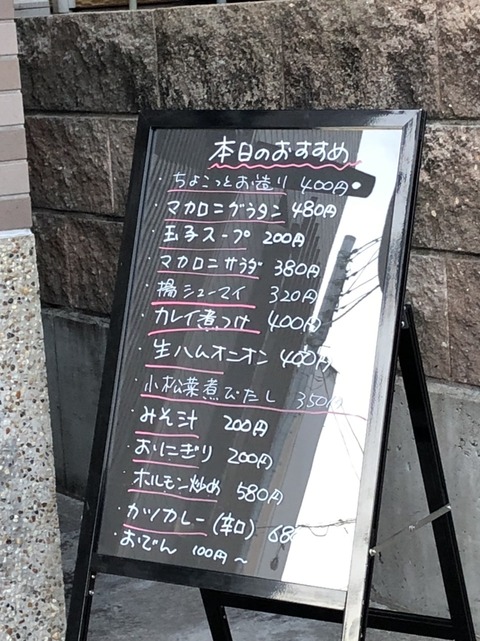 本日のおすすめ
・ちょこっとお造り 400円
・マカロニグラタン 480円
・玉子スープ 200円
・マカロニサラダ 380円
・揚シューマイ 320円
・カレイ煮つけ 400円
・生ハムオニオン 400円
・小松菜煮びたし 350円
・みそ汁 200円
・おにぎり 200円
・ホルモン炒め 580円
・カツカレー(辛口)
・おでん 100円〜